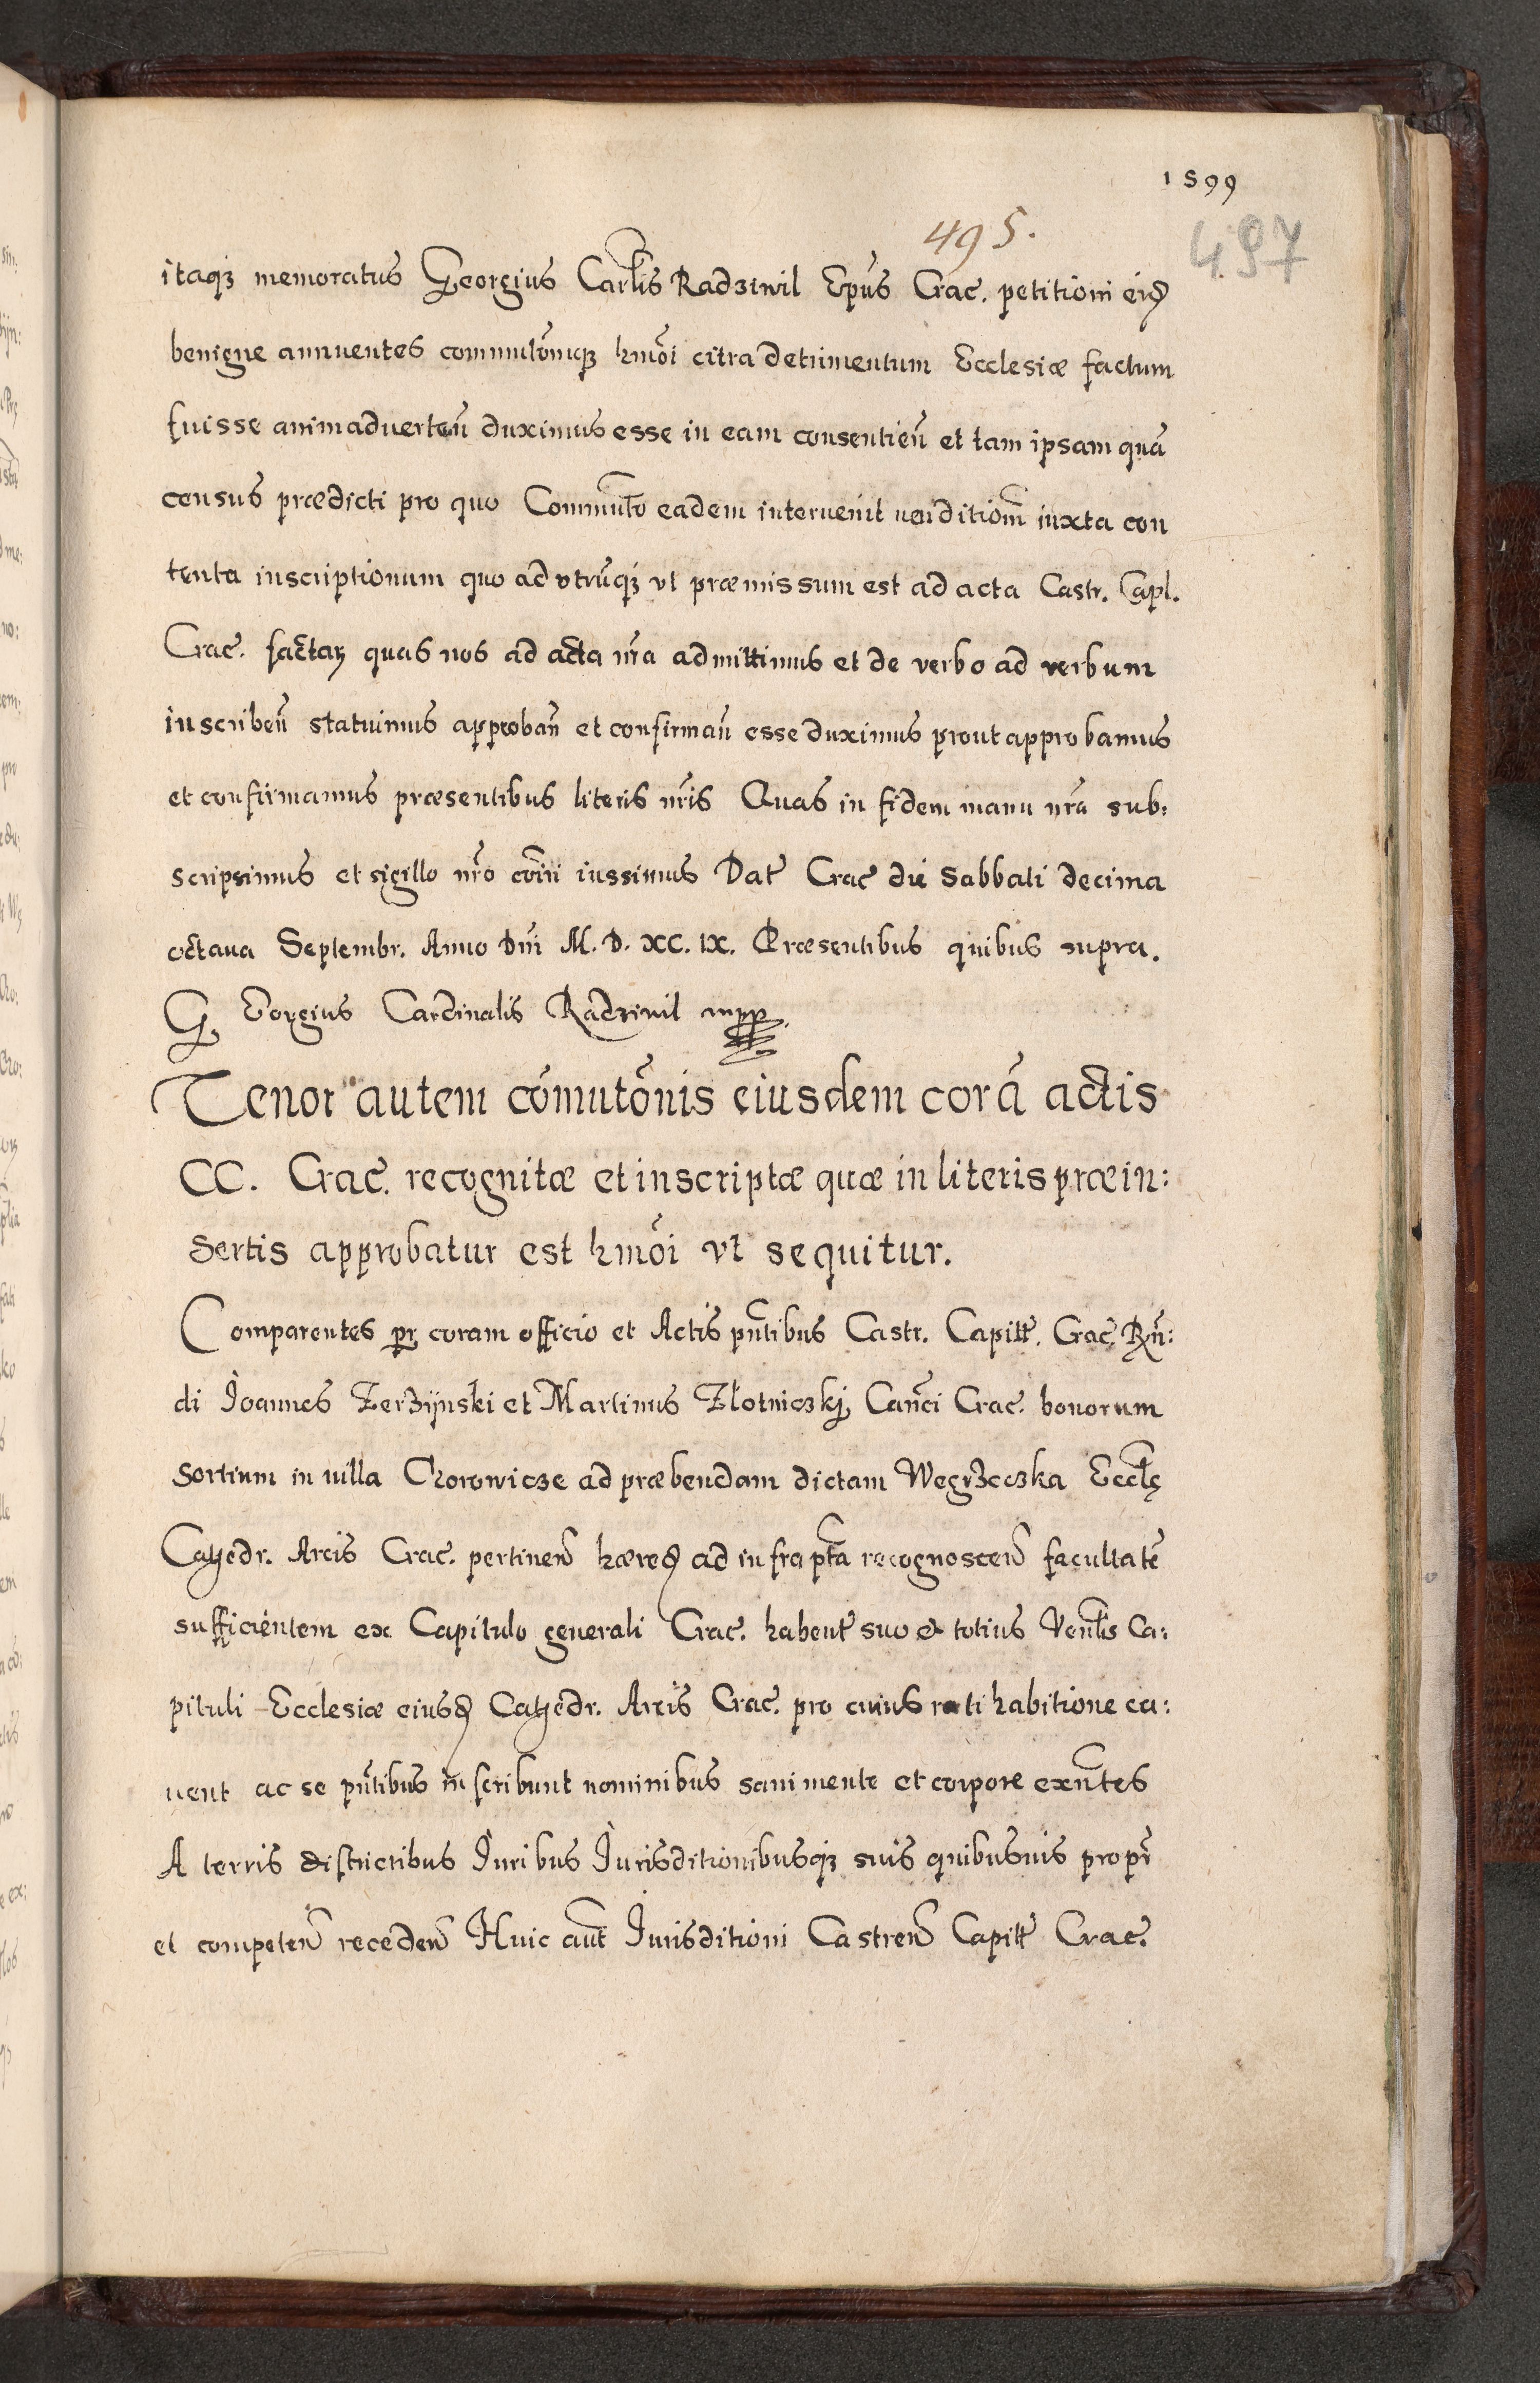 1599
495.
497
itaqꝫ memoratus Georgius Carlis Radziwil Epūs Crac. petitioni eiꝰ
benigne annuentes commutōnuqꝫ hmōi citra detrimentum Ecclesiæ factum
fuisse animaduerteñ duximus esse in eam consentieñ et tam ipsam quā
census prædicti pro quo Commutō eadem interuenit venditionē iuxta con
tenta inscriptionum quo ad vtrūqꝫ vt præmissum est ad acta Castr. Capl.
Crac. factaꝝ quas nos ad acta nr̄a admittimus et de verbo ad verbum
inscribeñ statuimus approbañ et confirmañ esse duximus prout approbamus
et confirmamus præsentibus literis nr̄is Quas in fidem manu nr̄a sub:
scripsimus et sigillo nr̄o cōiri iussimus Dat Crac die Sabbati decima
octaua Septembr. Anno Dn̄i M. D. XC. IX. Præsentibus quibus supra.
G Eorgius Cardinalis Radziwil mpp
Tenor autem cōmutōnis eiusdem corā actis
CC. Crac. recognitæ et inscriptæ quæ in literis præin:
sertis approbatur est hmōi vt sequitur.
Comparentes pꝛ coram officio et Actis pn̄tibus Castr. Capitł. Crac. Rn̄:
di Joannes Zerzijnski et Martinus Złotniczkj Can̄ci Crac. bonorum
sortium in villa Chorowicze ad præbendam dictam Węgrzeczka Eccłę
Cathedr. Arcis Crac. pertineñ hæredꝭ ad infrap̄ta recognosceñ facultatē
sufficientem ex Capitulo generali Crac. habent suo et totius Venłis Ca:
pituli Ecclesiæ eiusdꝭ Cathedr. Arcis Crac. pro cuius ratihabitione ca:
uent ac se pn̄tibus inscribunt nominibus sani mente et corpore exn̄tes
A terris districtibus Juribus Jurisditionibusqꝫ suis quibusuis propr̄
et competeñ recedeñ Huic aūt Jurisditioni Castreñ Capitł Crac.